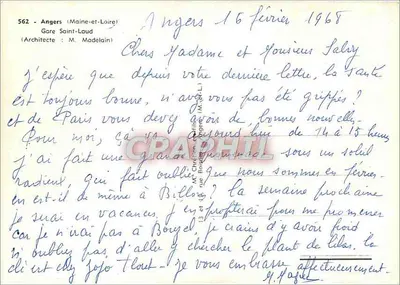 562 - Angers (Maine-et-Loire)
Gare Saint-Laud
(Architecte : M. Madelain)
Angers 16 février 1968
Chers Madame et Monsieur Salvy
J'espère que depuis votre dernière lettre, la santé
est toujours bonne, n'avez vous pas été grippés ?
et de Paris vous devez avoir de bonne nouvelle.
Pour moi, ça va aujourd'hui de 14 à 15 heures
j'ai fait une grande promenade sous un soleil
radieux, qui fait oublier que nous sommes en février
en est-il de même à Billom ? la semaine prochaine
je suis en vacances, j'en profiterai pour me promener
car je n'irai pas à je crains d'y avoir froid
n'oubliez pas d'aller y chercher le plant de lilas. la
clé est chez Jojo - je vous embrasse affectueusement.
CPARAMA